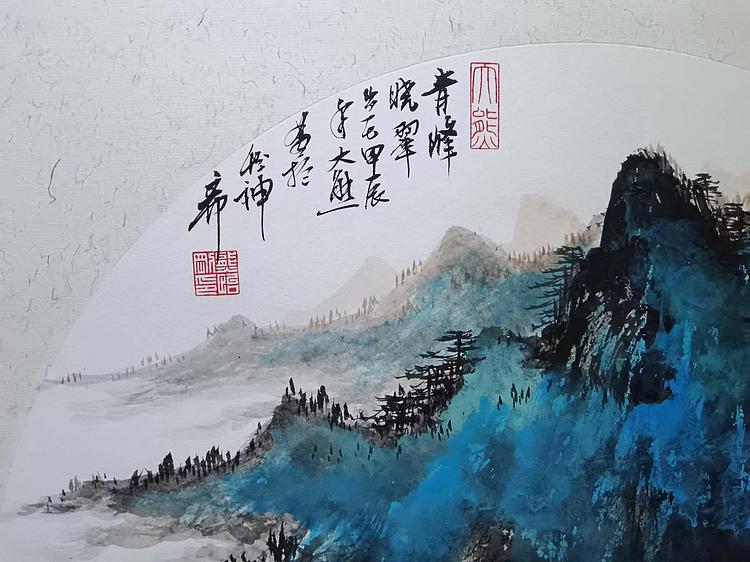 大熊
青峰
晓翠
岁在甲辰
年大熊
画於
神
斋